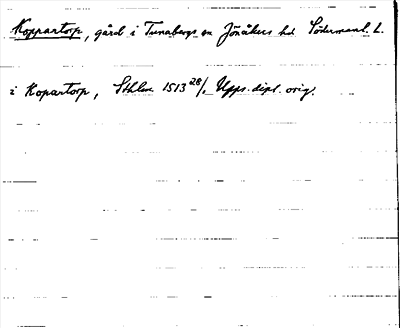 Koppartorp, gård i Tunabergs sn Jönåkers hd Södermanl. L.
i Kopartorp, Sthlm 1513 28/1 Upps. dipl. orig.